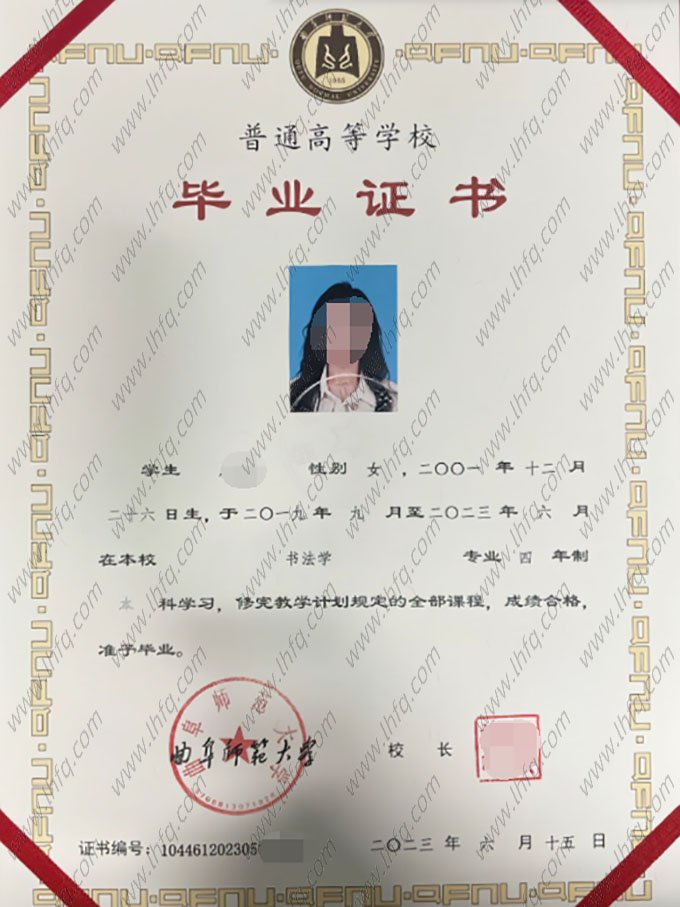 QFNU·QFNU·QFNU·QFNU
曲阜师范大学
QUFU NORMAL UNIVERSITY
普通高等学校
毕业证书
学生 性别 女,二〇〇一年 十二月
二十六日生,于二〇一九年 九 月至二〇二三年 六 月
在本校 书法学 专业 四 年制
本 科学习,修完教学计划规定的全部课程,成绩合格,
准予毕业。
曲阜师范大学
曲阜师范大学 校 长
证书编号:104461202305 二〇二三 年 六 月 十五 日
www.lhfq.com